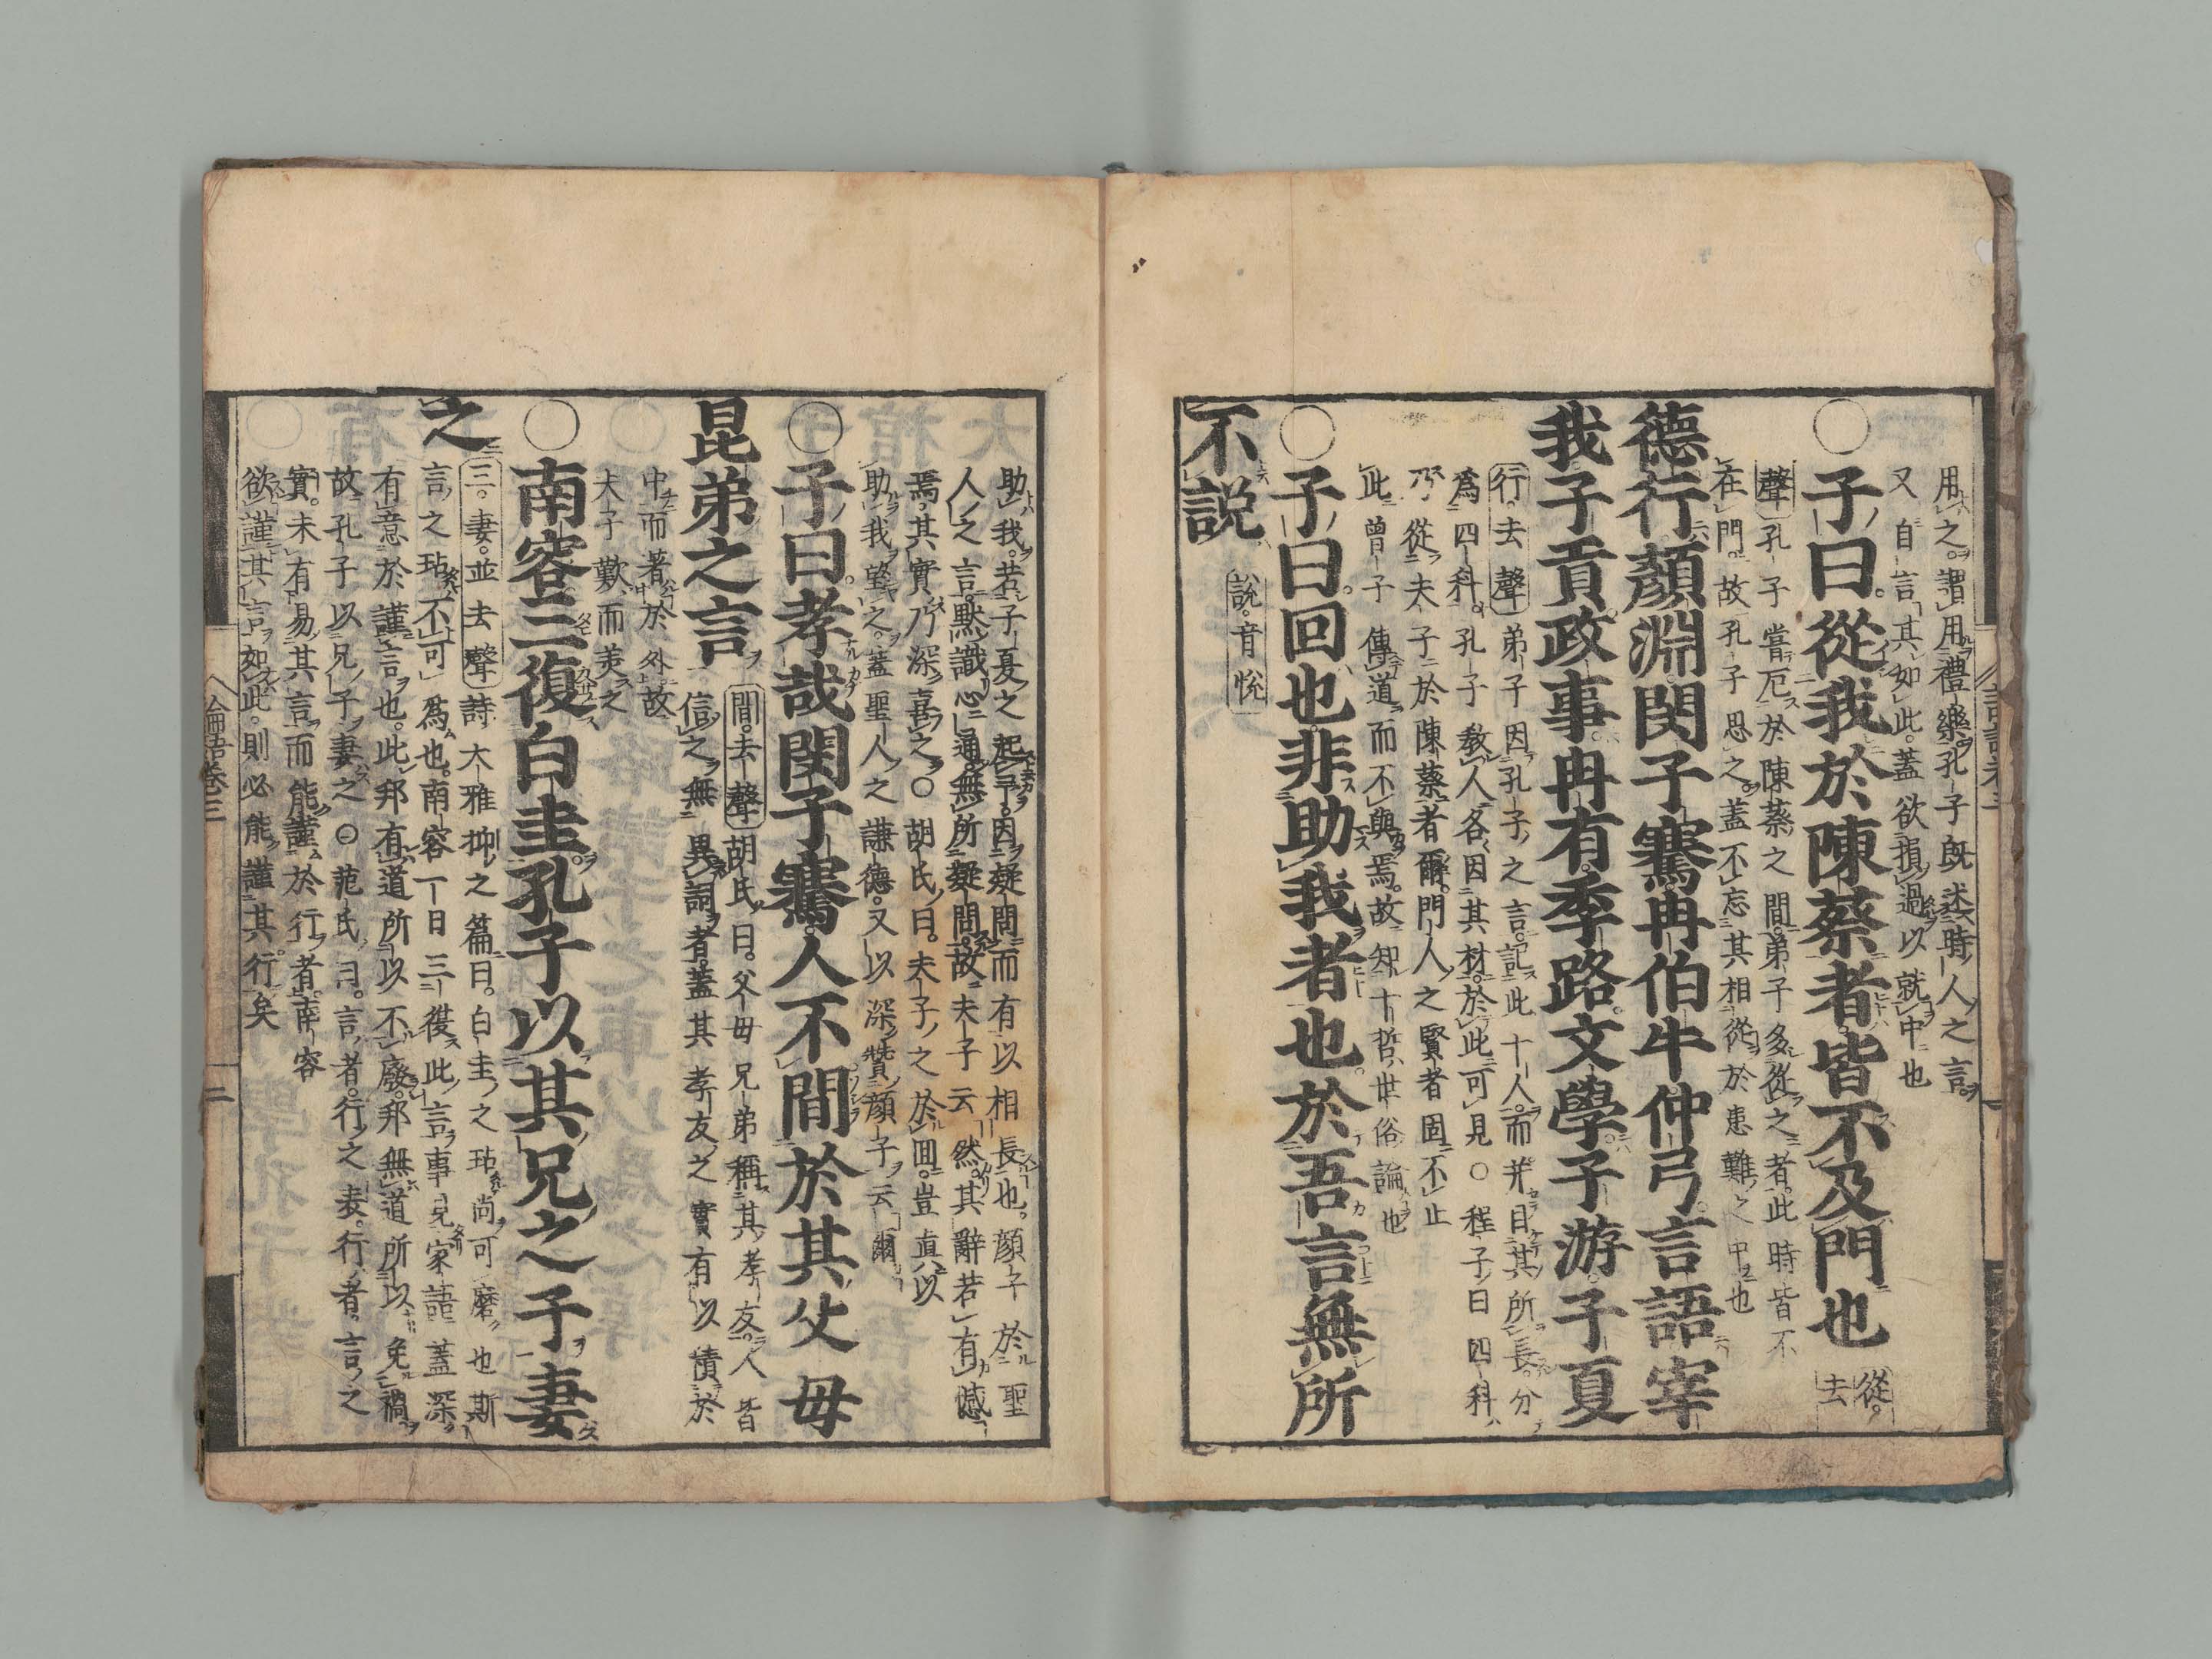 用之。謂用禮樂。孔子既述時人之言。
又自言其如此。蓋欲損過以就中也
○子曰。從我於陳蔡者。皆不及門也 從。去
聲 孔子嘗厄於陳蔡之間。弟子多從之者。此時皆不
在門。故孔子思之。蓋不忘其相從於患難之中也
德行顏淵閔子騫冉伯牛仲弓。言語宰
我子貢。政事冉有季路。文學子游子夏
行。去聲 弟子因孔子之言。記此十人。而并目其所長。分
爲四科。孔子教人各因其材。於此可見○程子曰四科
乃從夫子於陳蔡者爾。門人之賢者固不止
此曾子傳道而不與焉。故知十哲世俗論也
○子曰。回也非助我者也。於吾言無所
不說 說。音悅
助我。若子夏之起予。因疑問而有以相長也。顏子於聖
人之言。默識心通。無所疑問。故夫子云然。其辭若有憾
焉。其實乃深喜之。○胡氏曰。夫子之於回。豈眞以
助我望之。蓋聖人之謙德。又以深贊顏子云爾
○子曰。孝哉閔子騫。人不間於其父母
昆弟之言 間。去聲 胡氏曰。父母兄弟稱其孝友。人皆
信之無異詞者。蓋其孝友之實有以積於
中而著於外。故
夫子歎而美之
○南容三復白圭。孔子以其兄之子妻
之 三。妻。並去聲 詩大雅抑之篇曰。白圭之玷尚可磨也斯
言之玷不可爲也。南容一日三復此言。事見家語蓋深
有意於謹言也。此邦有道所以不廢。邦無道所以免禍
故孔子以兄子妻之○范氏曰。言者。行之表。行者。言之
實。未有易其言而能謹於行者。南容
欲謹其言如此。則必能謹其行矣
論語卷三
二